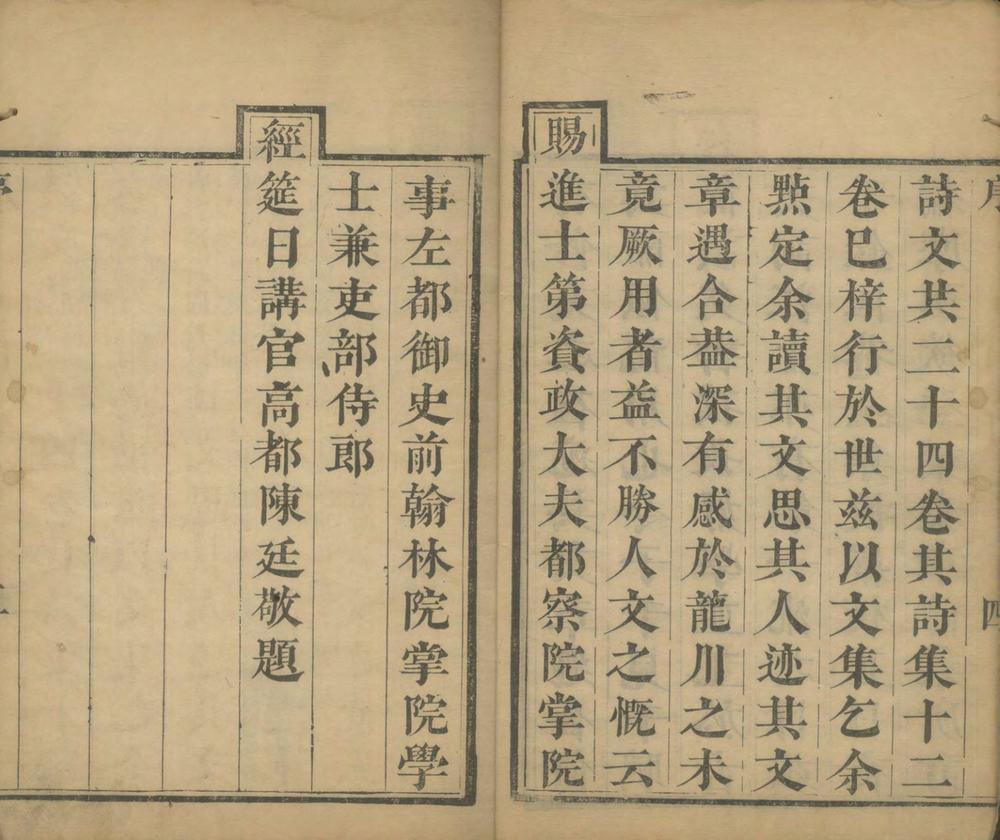 詩文共二十四卷其詩集十二
卷已梓行於世兹以文集乞余
㸃定余讀其文思其人迹其文
章遇合葢深有感於龍川之未
竟厥用者益不勝人文之慨云
賜進士第資政大夫都察院掌院
事左都御史前翰林院掌院學
士兼吏部侍郎
經筵日講官高都陳廷敬題